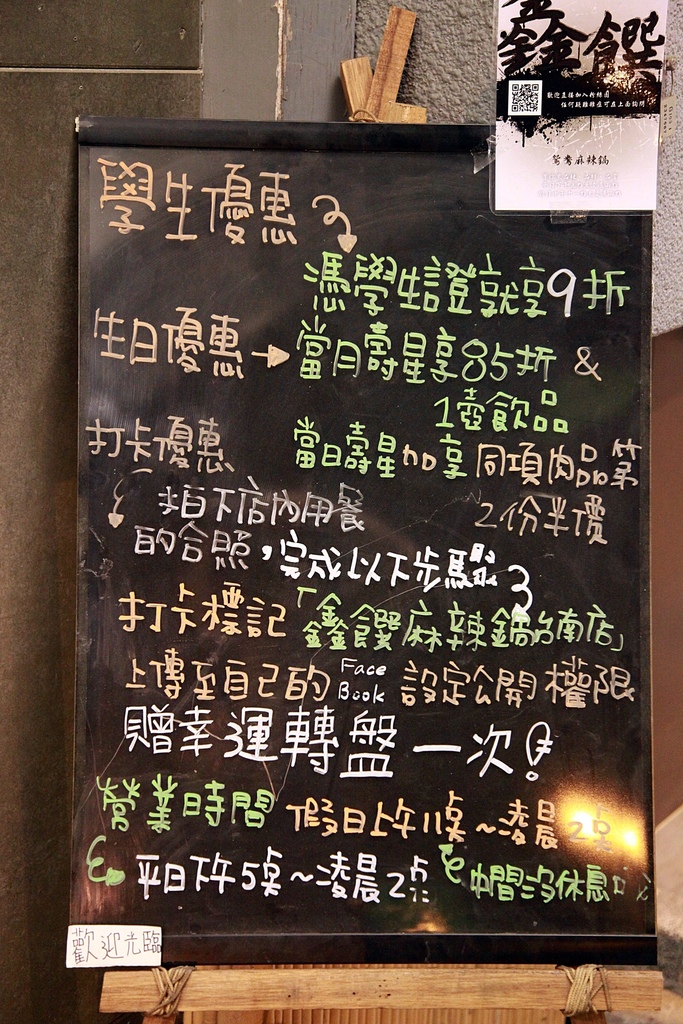 鑫饌
歡迎直接加入粉絲團
任何疑難雜症可在上面詢問
鴛鴦麻辣鍋
學生優惠
憑學生證就享9折
生日優惠→當月壽星享85折 &
1壺飲品
打卡優惠 當日壽星加享同項肉品第
2份半價
拍下店內用餐
的合照，完成以下步驟
打卡標記「鑫饌麻辣鍋台南店」
上傳至自己的Face Book 設定公開權限
贈幸運轉盤一次!
營業時間 假日上午11點~凌晨2點
平日下午5點~凌晨2點 中間沒休息
歡迎光臨